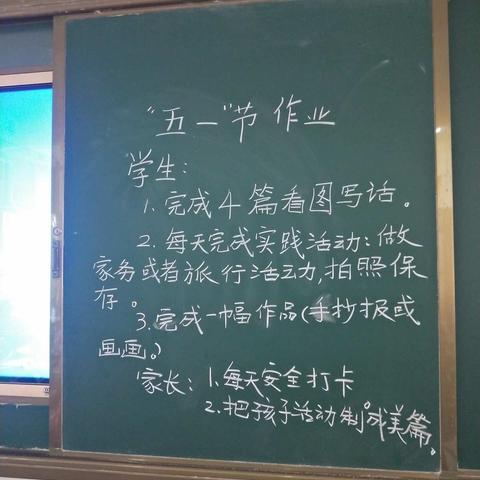 “五一”节作业
学生：
1.完成4篇看图写话。
2.每天完成实践活动：做
家务或者旅行活动,拍照保
存。
3.完成一幅作品(手抄报或
画画。)
家长：1.每天安全打卡
2.把孩子活动制成美篇。